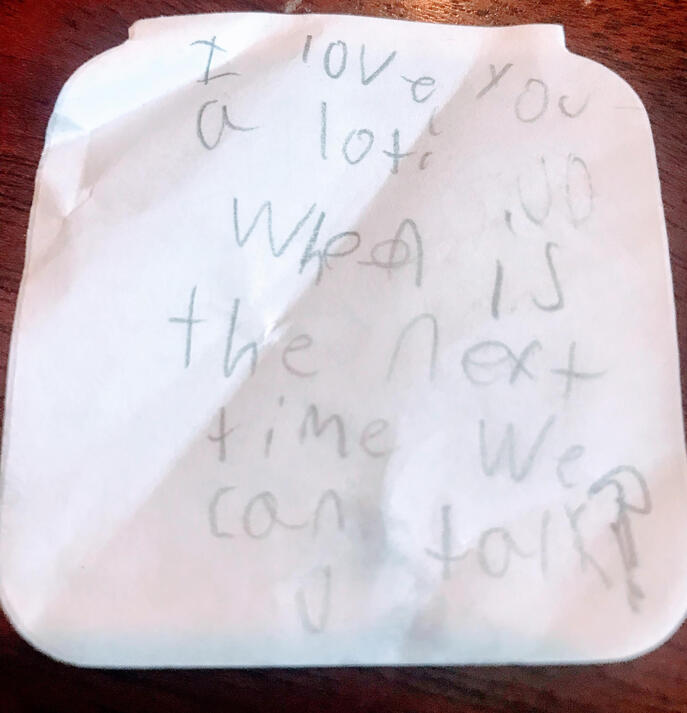 I love you
a lot!
When is
the next
time we
can talk?